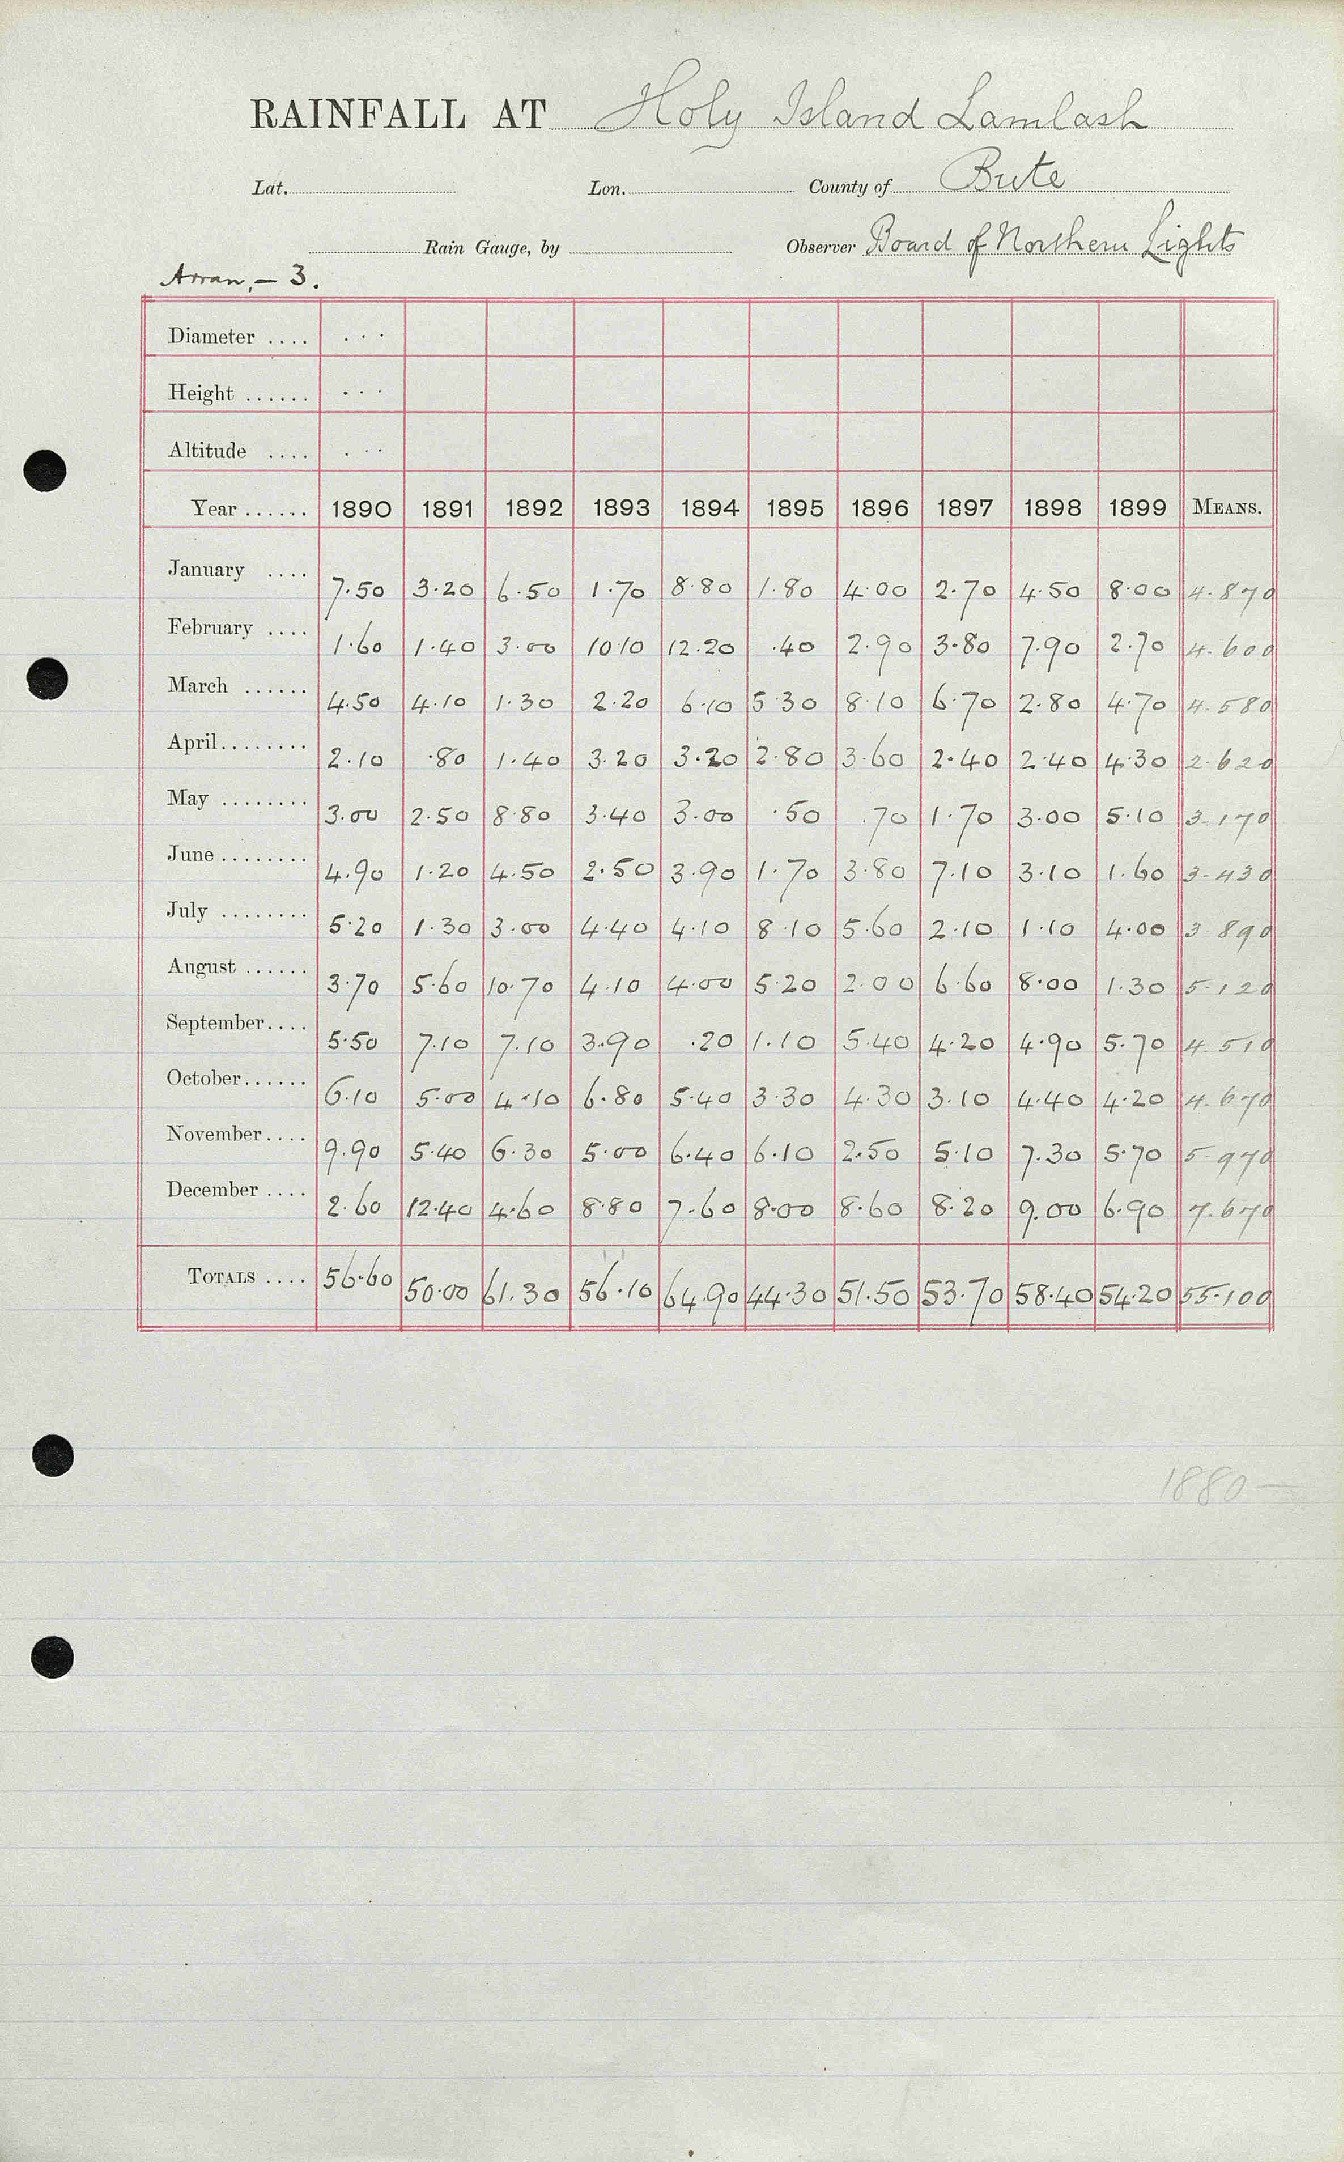 RAINFALL AT Holy Island Lamlash
Lat. Lon. County of Bute
Rain Gauge, by Observer Board of Northern Lights
Arran,— 3.
Diameter .... ...
Height ...... ...
Altitude .... ...
Year ...... 1890 1891 1892 1893 1894 1895 1896 1897 1898 1899 MEANS.
January .... 7.50 3.20 6.50 1.70 8.80 1.80 4.00 2.70 4.50 8.00 4.870
February .... 1.60 1.40 3.00 10.10 12.20 .40 2.90 3.80 7.90 2.70 4.600
March ...... 4.50 4.10 1.30 2.20 6.10 5.30 8.10 6.70 2.80 4.70 4.580
April ........ 2.10 .80 1.40 3.20 3.20 2.80 3.60 2.40 2.40 4.30 2.620
May ........ 3.00 2.50 8.80 3.40 3.00 .50 .70 1.70 3.00 5.10 3.170
June ........ 4.90 1.20 4.50 2.50 3.90 1.70 3.80 7.10 3.10 1.60 3.430
July ........ 5.20 1.30 3.00 4.40 4.10 8.10 5.60 2.10 1.10 4.00 3.890
August ...... 3.70 5.60 10.70 4.10 4.00 5.20 2.00 6.60 8.00 1.30 5.120
September .... 5.50 7.10 7.10 3.90 .20 1.10 5.40 4.20 4.90 5.70 4.510
October ...... 6.10 5.00 4.10 6.80 5.40 3.30 4.30 3.10 4.40 4.20 4.670
November .... 9.90 5.40 6.30 5.00 6.40 6.10 2.50 5.10 7.30 5.70 5.970
December .... 2.60 12.40 4.60 8.80 7.60 8.00 8.60 8.20 9.00 6.90 7.670
TOTALS .... 56.60 50.00 61.30 56.10 64.90 44.30 51.50 53.70 58.40 54.20 55.100
1880 —